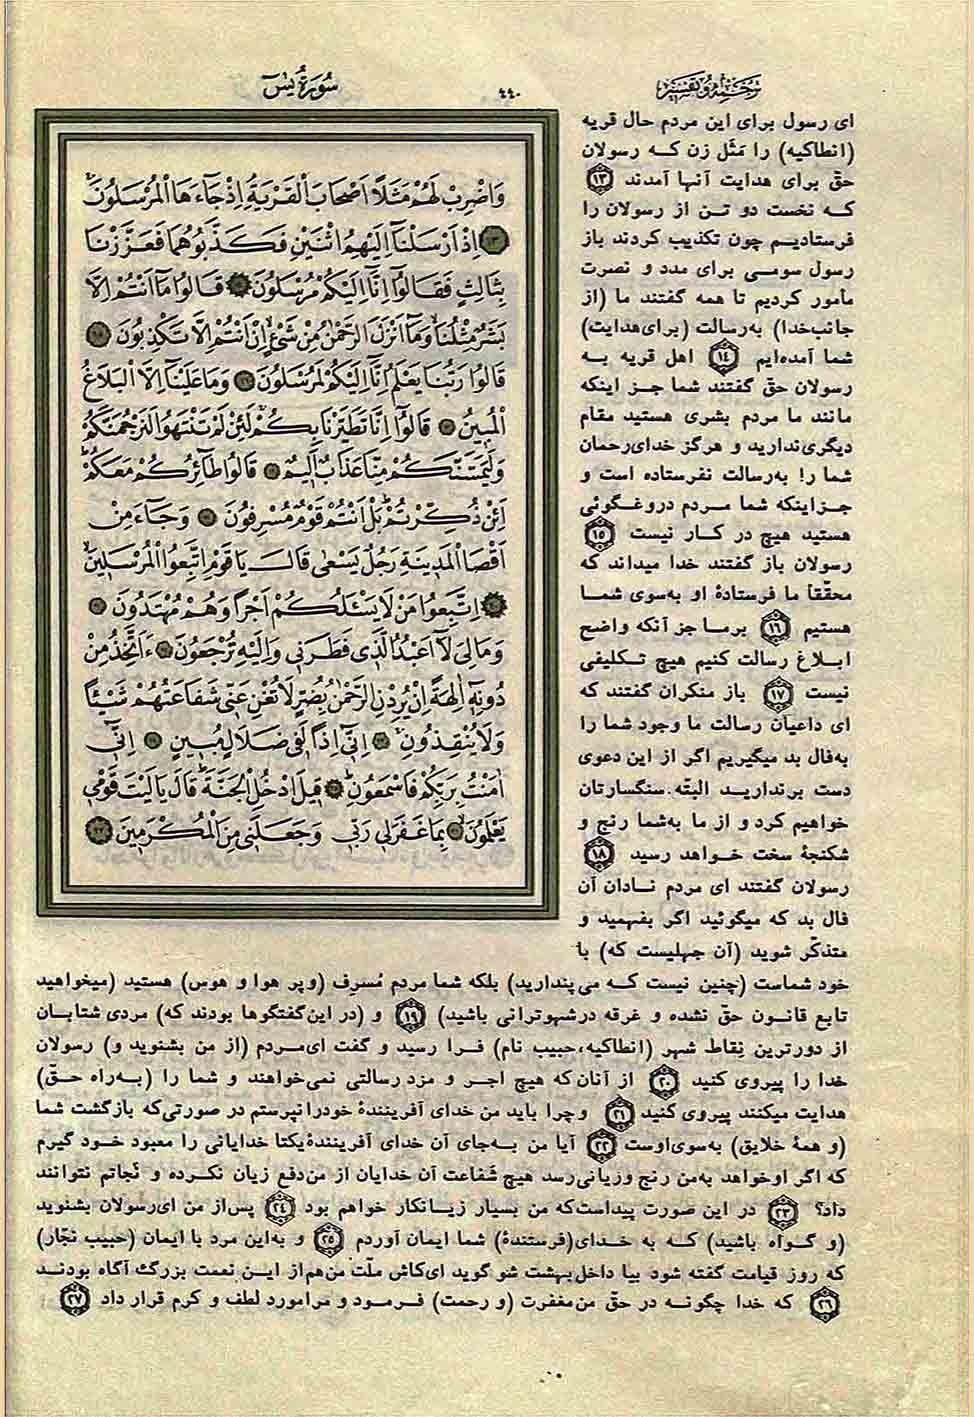 سُورَةُ يٰسۤ
٤٤٠
ترجمه و تفسیر
وَاضْرِبْ لَهُمْ مَثَلًا اَصْحَابَ الْقَرْيَةِ اِذْ جَاۤءَهَا الْمُرْسَلُونَ
﴿١٣﴾ اِذْ اَرْسَلْنَاۤ اِلَيْهِمُ اثْنَيْنِ فَكَذَّبُوهُمَا فَعَزَّزْنَا
بِثَالِثٍ فَقَالُوۤا اِنَّاۤ اِلَيْكُمْ مُرْسَلُونَ ﴿١٤﴾ قَالُوا مَاۤ اَنْتُمْ اِلَّا
بَشَرٌ مِثْلُنَا وَمَاۤ اَنْزَلَ الرَّحْمٰنُ مِنْ شَيْءٍ اِنْ اَنْتُمْ اِلَّا تَكْذِبُونَ ﴿١٥﴾
قَالُوا رَبُّنَا يَعْلَمُ اِنَّاۤ اِلَيْكُمْ لَمُرْسَلُونَ ﴿١٦﴾ وَمَا عَلَيْنَاۤ اِلَّا الْبَلَاغُ
الْمُبِينُ ﴿١٧﴾ قَالُوۤا اِنَّا تَطَيَّرْنَا بِكُمْ لَئِنْ لَمْ تَنْتَهُوا لَنَرْجُمَنَّكُمْ
وَلَيَمَسَّنَّكُمْ مِنَّا عَذَابٌ اَلِيمٌ ﴿١٨﴾ قَالُوا طَاۤئِرُكُمْ مَعَكُمْ
اَئِنْ ذُكِّرْتُمْ بَلْ اَنْتُمْ قَوْمٌ مُسْرِفُونَ ﴿١٩﴾ وَجَاۤءَ مِنْ
اَقْصَا الْمَدِينَةِ رَجُلٌ يَسْعٰى قَالَ يَا قَوْمِ اتَّبِعُوا الْمُرْسَلِينَ
﴿٢٠﴾ اِتَّبِعُوا مَنْ لَا يَسْئَلُكُمْ اَجْرًا وَهُمْ مُهْتَدُونَ ﴿٢١﴾
وَمَا لِيَ لَاۤ اَعْبُدُ الَّذِي فَطَرَنِي وَاِلَيْهِ تُرْجَعُونَ ﴿٢٢﴾ ءَاَتَّخِذُ مِنْ
دُونِهِ اٰلِهَةً اِنْ يُرِدْنِ الرَّحْمٰنُ بِضُرٍّ لَا تُغْنِ عَنِّي شَفَاعَتُهُمْ شَيْئًا
وَلَا يُنْقِذُونِ ﴿٢٣﴾ اِنِّۤي اِذًا لَفِي ضَلَالٍ مُبِينٍ ﴿٢٤﴾ اِنِّۤي
اٰمَنْتُ بِرَبِّكُمْ فَاسْمَعُونِ ﴿٢٥﴾ قِيلَ ادْخُلِ الْجَنَّةَ قَالَ يَا لَيْتَ قَوْمِي
يَعْلَمُونَ ﴿٢٦﴾ بِمَا غَفَرَ لِي رَبِّي وَجَعَلَنِي مِنَ الْمُكْرَمِينَ ﴿٢٧﴾
ای رسول برای این مردم حال قریه
(انطاکیه) را مَثَل زن که رسولان
حقّ برای هدایت آنها آمدند ﴿١٣﴾
که نخست دو تن از رسولان را
فرستادیم چون تکذیب کردند باز
رسول سومی برای مدد و نصرت
مأمور کردیم تا همه گفتند ما (از
جانب خدا) به رسالت (برای هدایت)
شما آمده‌ایم ﴿١٤﴾ اهل قریه به
رسولان حقّ گفتند شما جز اینکه
مانند ما مردم بشری هستید مقام
دیگری ندارید و هرگز خدای رحمان
شما را به رسالت نفرستاده است و
جز اینکه شما مردم دروغگوئی
هستید هیچ در کار نیست ﴿١٥﴾
رسولان باز گفتند خدا میداند که
محقّقاً ما فرستادهٔ او به سوی شما
هستیم ﴿١٦﴾ بر ما جز آنکه واضح
ابلاغ رسالت کنیم هیچ تکلیفی
نیست ﴿١٧﴾ باز منکران گفتند که
ای داعیان رسالت ما وجود شما را
به فال بد میگیریم اگر از این دعوی
دست برندارید البتّه سنگسارتان
خواهیم کرد و از ما به شما رنج و
شکنجهٔ سخت خواهد رسید ﴿١٨﴾
رسولان گفتند ای مردم نادان آن
فال بد که میگوئید اگر بفهمید و
متذکّر شوید (آن جهلیست که) با
خود شماست (چنین نیست که می‌پندارید) بلکه شما مردم مُسرِف (و پر هوا و هوس) هستید (میخواهید
تابع قانون حقّ نشده و غرقه در شهوترانی باشید) ﴿١٩﴾ و (در این گفتگوها بودند که) مردی شتابان
از دورترین نِقاط شهر (انطاکیه، حبیب نام) فرا رسید و گفت ای مردم (از من بشنوید و) رسولان
خدا را پیروی کنید ﴿٢٠﴾ از آنان که هیچ اجر و مزد رسالتی نمی‌خواهند و شما را (به راه حقّ)
هدایت میکنند پیروی کنید ﴿٢١﴾ و چرا باید من خدای آفرینندهٔ خود را نپرستم در صورتی که بازگشت شما
(و همهٔ خلایق) به سوی اوست ﴿٢٢﴾ آیا من به جای آن خدای آفرینندهٔ یکتا خدایانی را معبود خود گیرم
که اگر او خواهد به من رنج و زیانی رسد هیچ شَفاعت آن خدایان از من دفع زیان نکرده و نَجاتم نتوانند
داد؟ ﴿٢٣﴾ در این صورت پیداست که من بسیار زیانکار خواهم بود ﴿٢٤﴾ پس از من ای رسولان بشنوید
(و گواه باشید) که به خدای (فرستندهٔ) شما ایمان آوردم ﴿٢٥﴾ و به این مرد با ایمان (حبیب نجّار)
که روز قیامت گفته شود بیا داخل بهشت شو گوید ای کاش ملّت من هم از این نعمت بزرگ آگاه بودند
﴿٢٦﴾ که خدا چگونه در حقّ من مغفرت (و رحمت) فرمود و مرا مورد لطف و کرم قرار داد ﴿٢٧﴾